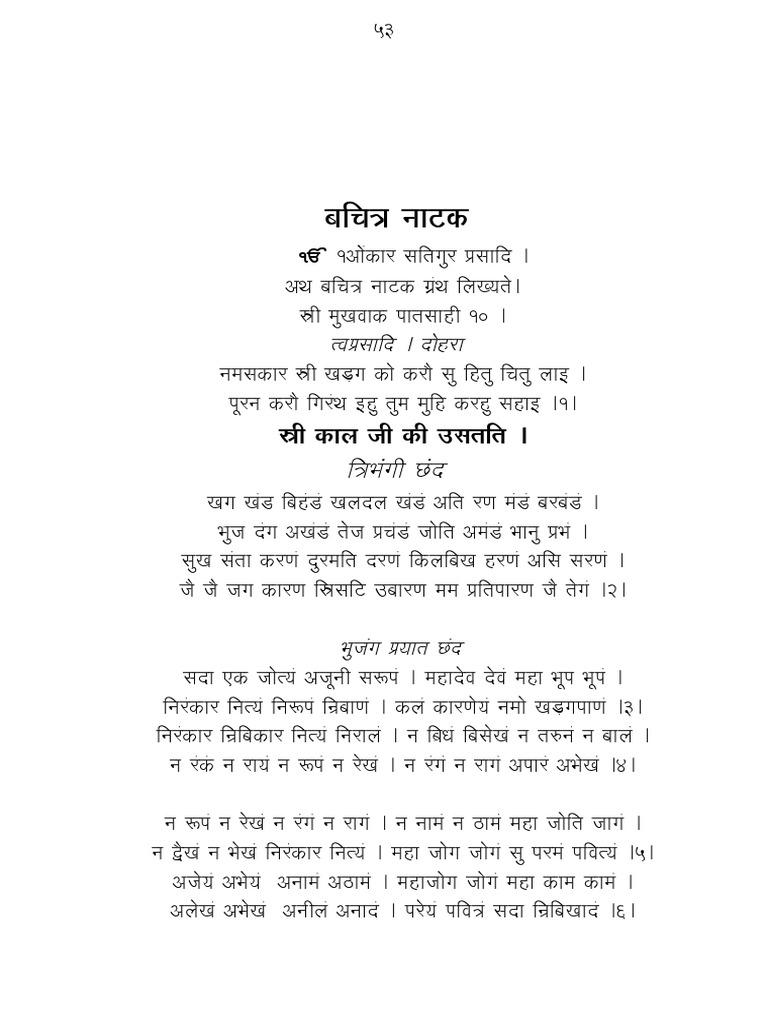 ५३
बचित्र नाटक
ੴ १ओंकार सतिगुर प्रसादि ।
अथ बचित्र नाटक ग्रंथ लिख्यते।
स्री मुखवाक पातसाही १० ।
त्वप्रसादि । दोहरा
नमसकार स्री खड़ग को करौ सु हितु चितु लाइ ।
पूरन करौ गिरंथ इहु तुम मुहि करहु सहाइ ।१।
स्री काल जी की उसतति ।
त्रिभंगी छंद
खग खंड बिहंडं खलदल खंडं अति रण मंडं बरबंडं ।
भुज दंग अखंडं तेज प्रचंडं जोति अमंडं भानु प्रभं ।
सुख संता करणं दुरमति दरणं किलबिख हरणं असि सरणं ।
जै जै जग कारण स्रिसटि उबारण मम प्रतिपारण जै तेगं ।२।
भुजंग प्रयात छंद
सदा एक जोत्यं अजूनी सरूपं । महादेव देवं महा भूप भूपं ।
निरंकार नित्यं निरूपं न्रिबाणं । कलं कारणेयं नमो खड़गपाणं ।३।
निरंकार न्रिबिकार नित्यं निरालं । न बिधं बिसेखं न तरुनं न बालं ।
न रंकं न रायं न रूपं न रेखं । न रंगं न रागं अपारं अभेखं ।४।
न रूपं न रेखं न रंगं न रागं । न नामं न ठामं महा जोति जागं ।
न द्वैखं न भेखं निरंकार नित्यं । महा जोग जोगं सु परमं पवित्यं ।५।
अजेयं अभेयं अनामं अठामं । महाजोग जोगं महा काम कामं ।
अलेखं अभेखं अनीलं अनादं । परेयं पवित्रं सदा न्रिबिखादं ।६।